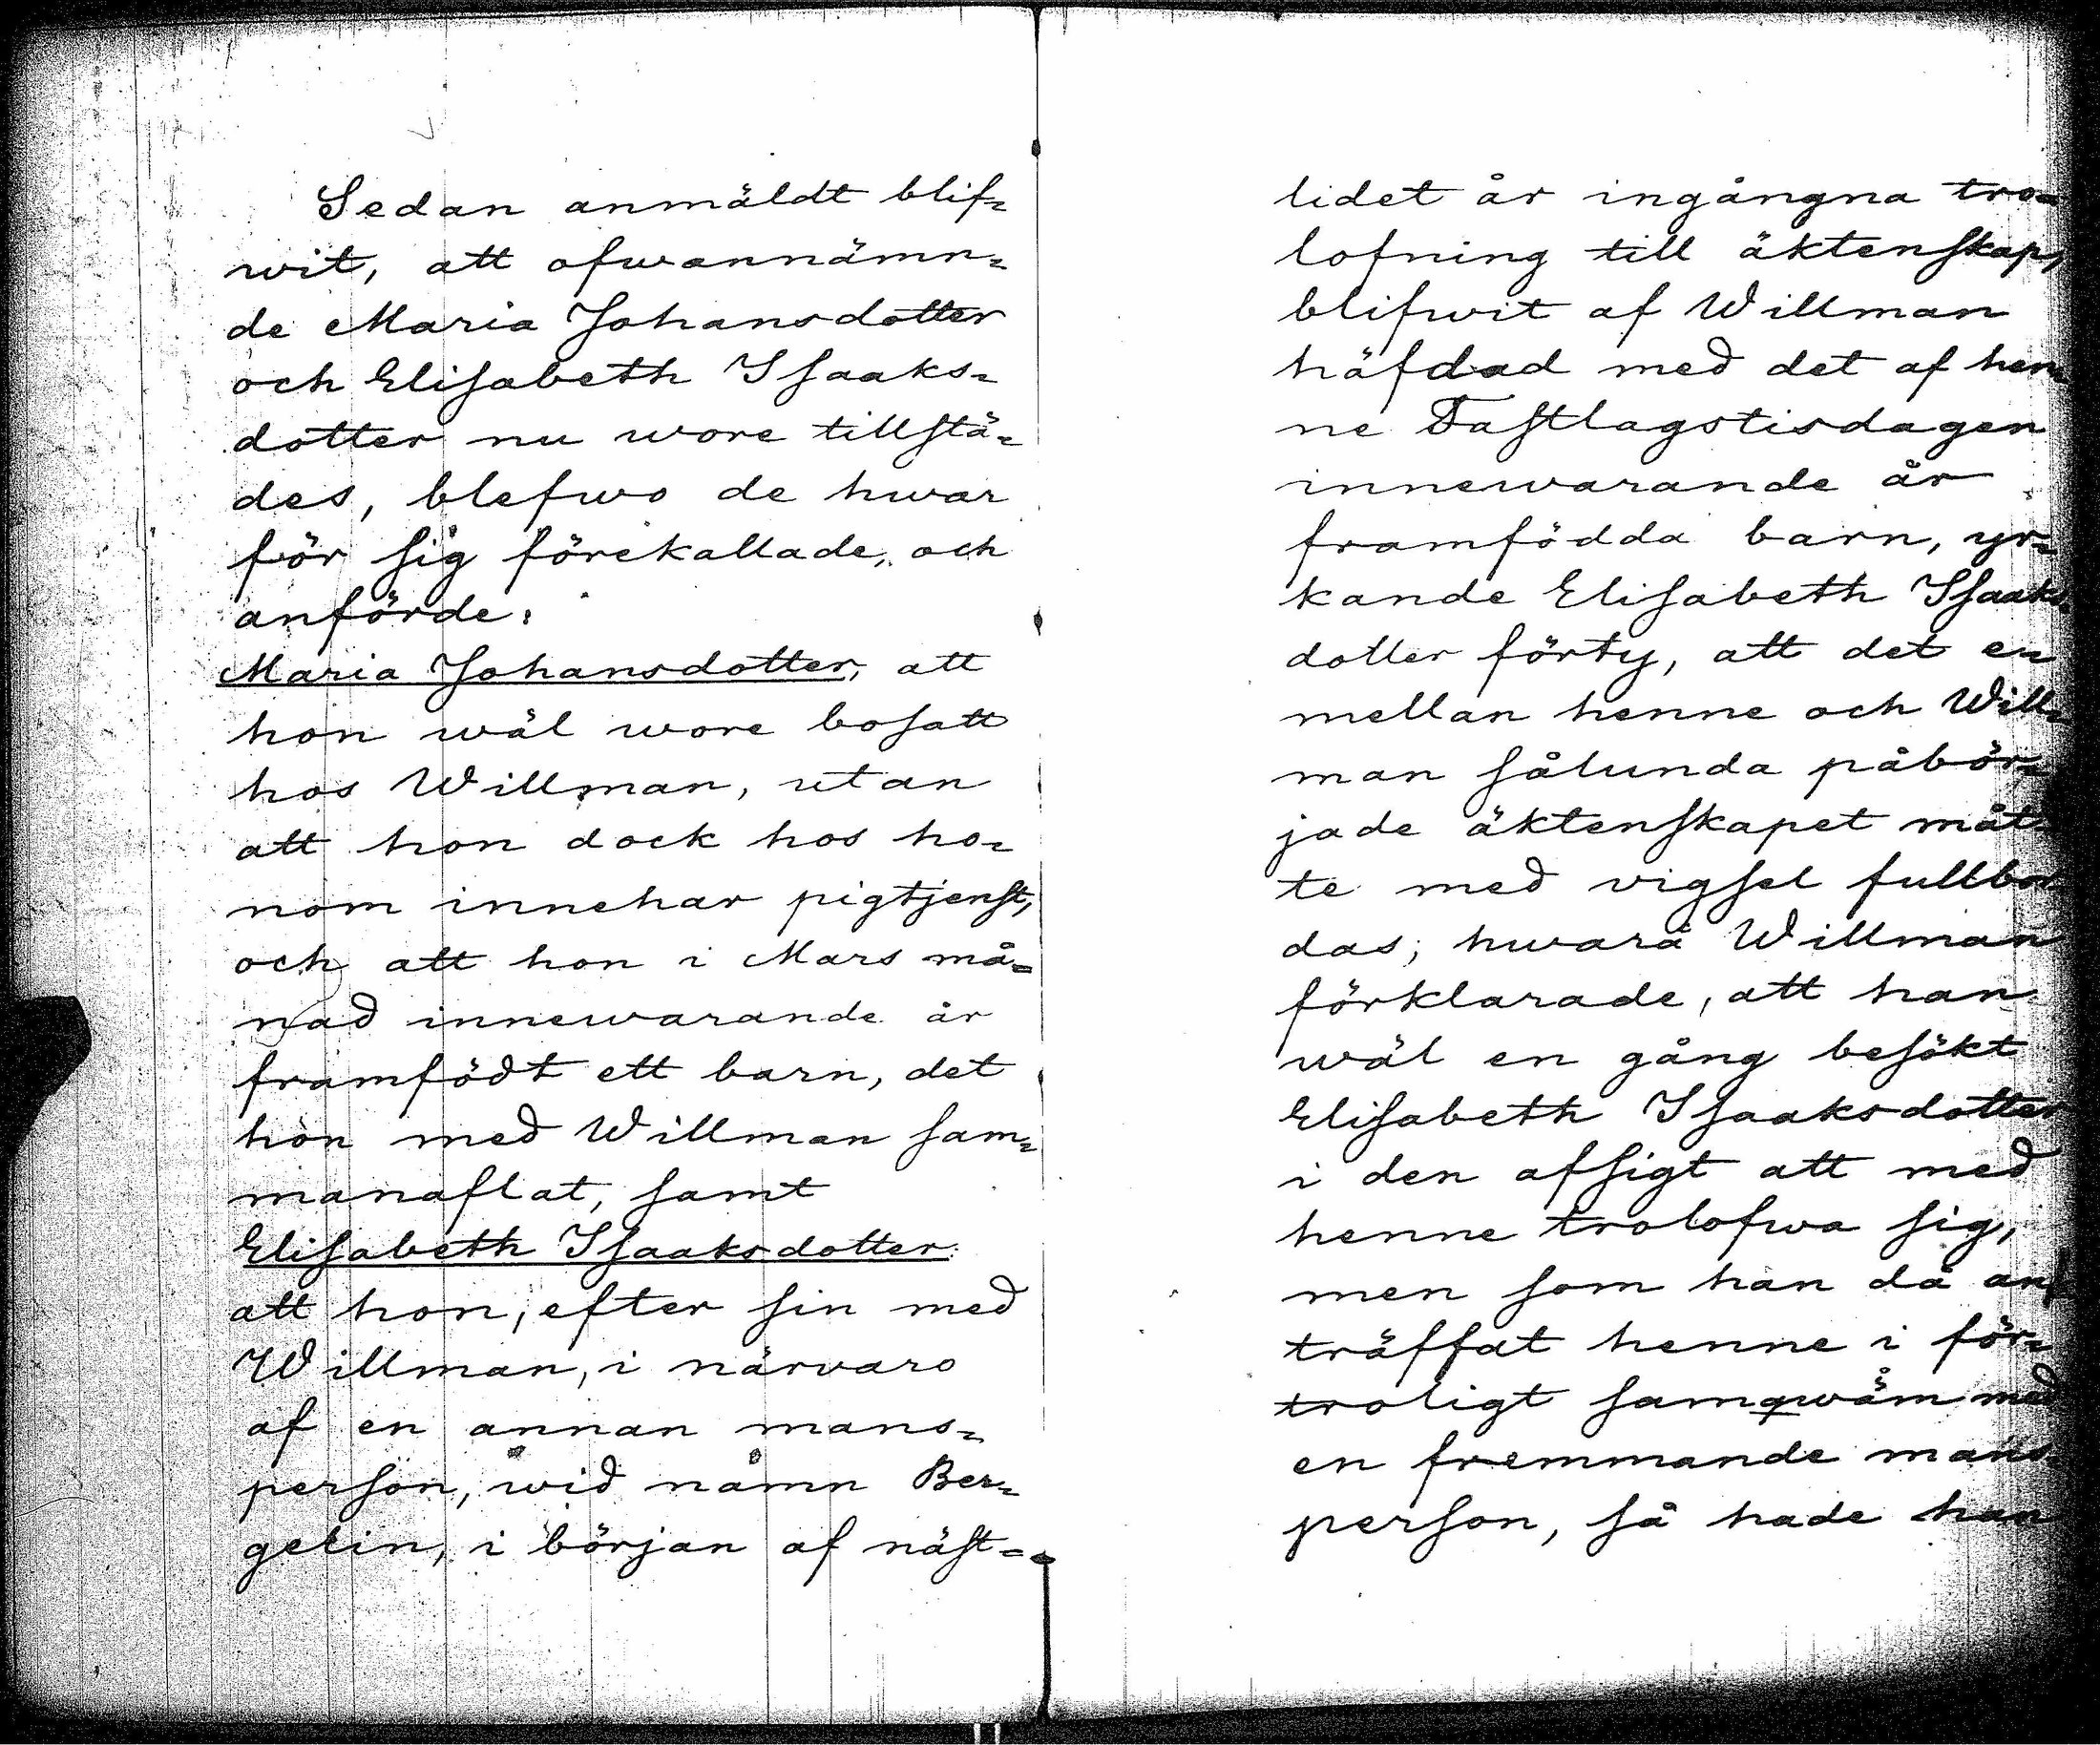 Sedan anmäldt blif-
wit, att ofwannämn-
de Maria Johansdotter
och Elisabeth Isaaks-
dotter nu wore tillstä-
des, blefwo de hwar
för sig förekallade, och
anförde:
Maria Johansdotter, att
hon wäl wore bosatt
hos Willman, utan
att hon dock hos ho-
nom innehar pigtjenst,
och att hon i Mars må-
nad innewarande år
framfödt ett barn, det
hon med Willman sam-
manaflat, samt
Elisabeth Isaaksdotter
att hon, efter sin med
Willman, i närvaro
af en annan mans-
person, wid namn Ber-
gelin, i början af näst-
lidet år ingångna tro-
lofning till äktenskap,
blifwit af Willman
häfdad med det af hen-
ne Fastlagstisdagen
innewarande år
framfödda barn, yr-
kande Elisabeth Isaaks
dotter förty, att det e-
mellan henne och Will-
man sålunda påbör-
jade äktenskapet måt-
te med vigsel fullbor
das; hwarå Willman
förklarade, att han
wäl en gång besökt
Elisabeth Isaaksdotter
i den afsigt att med
henne trolofwa sig,
men som han då an-
träffat henne i för-
troligt samqwäm med
en fremmande mans-
person, så hade han